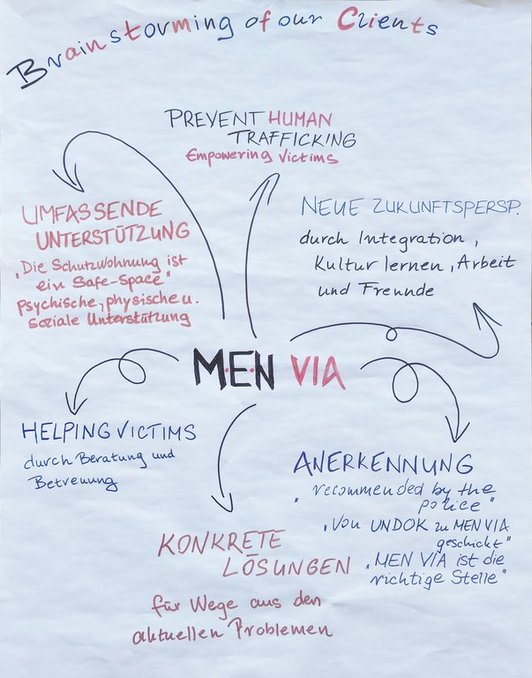 Brainstorming of our Clients
PREVENT HUMAN
TRAFFICKING
Empowering Victims
UMFASSENDE
UNTERSTÜTZUNG
"Die Schutzwohnung ist
ein Safe-Space"
psychische, physische u.
soziale Unterstützung
NEUE ZUKUNFTSPERSP.
durch Integration,
Kultur lernen, Arbeit
und Freunde
MEN VIA
HELPING VICTIMS
durch Beratung und
Betreuung
ANERKENNUNG
"recommended by the
police"
"Von UNDOK zu MEN VIA
geschickt"
"MEN VIA ist die
richtige Stelle"
KONKRETE
LÖSUNGEN
für Wege aus den
aktuellen Problemen